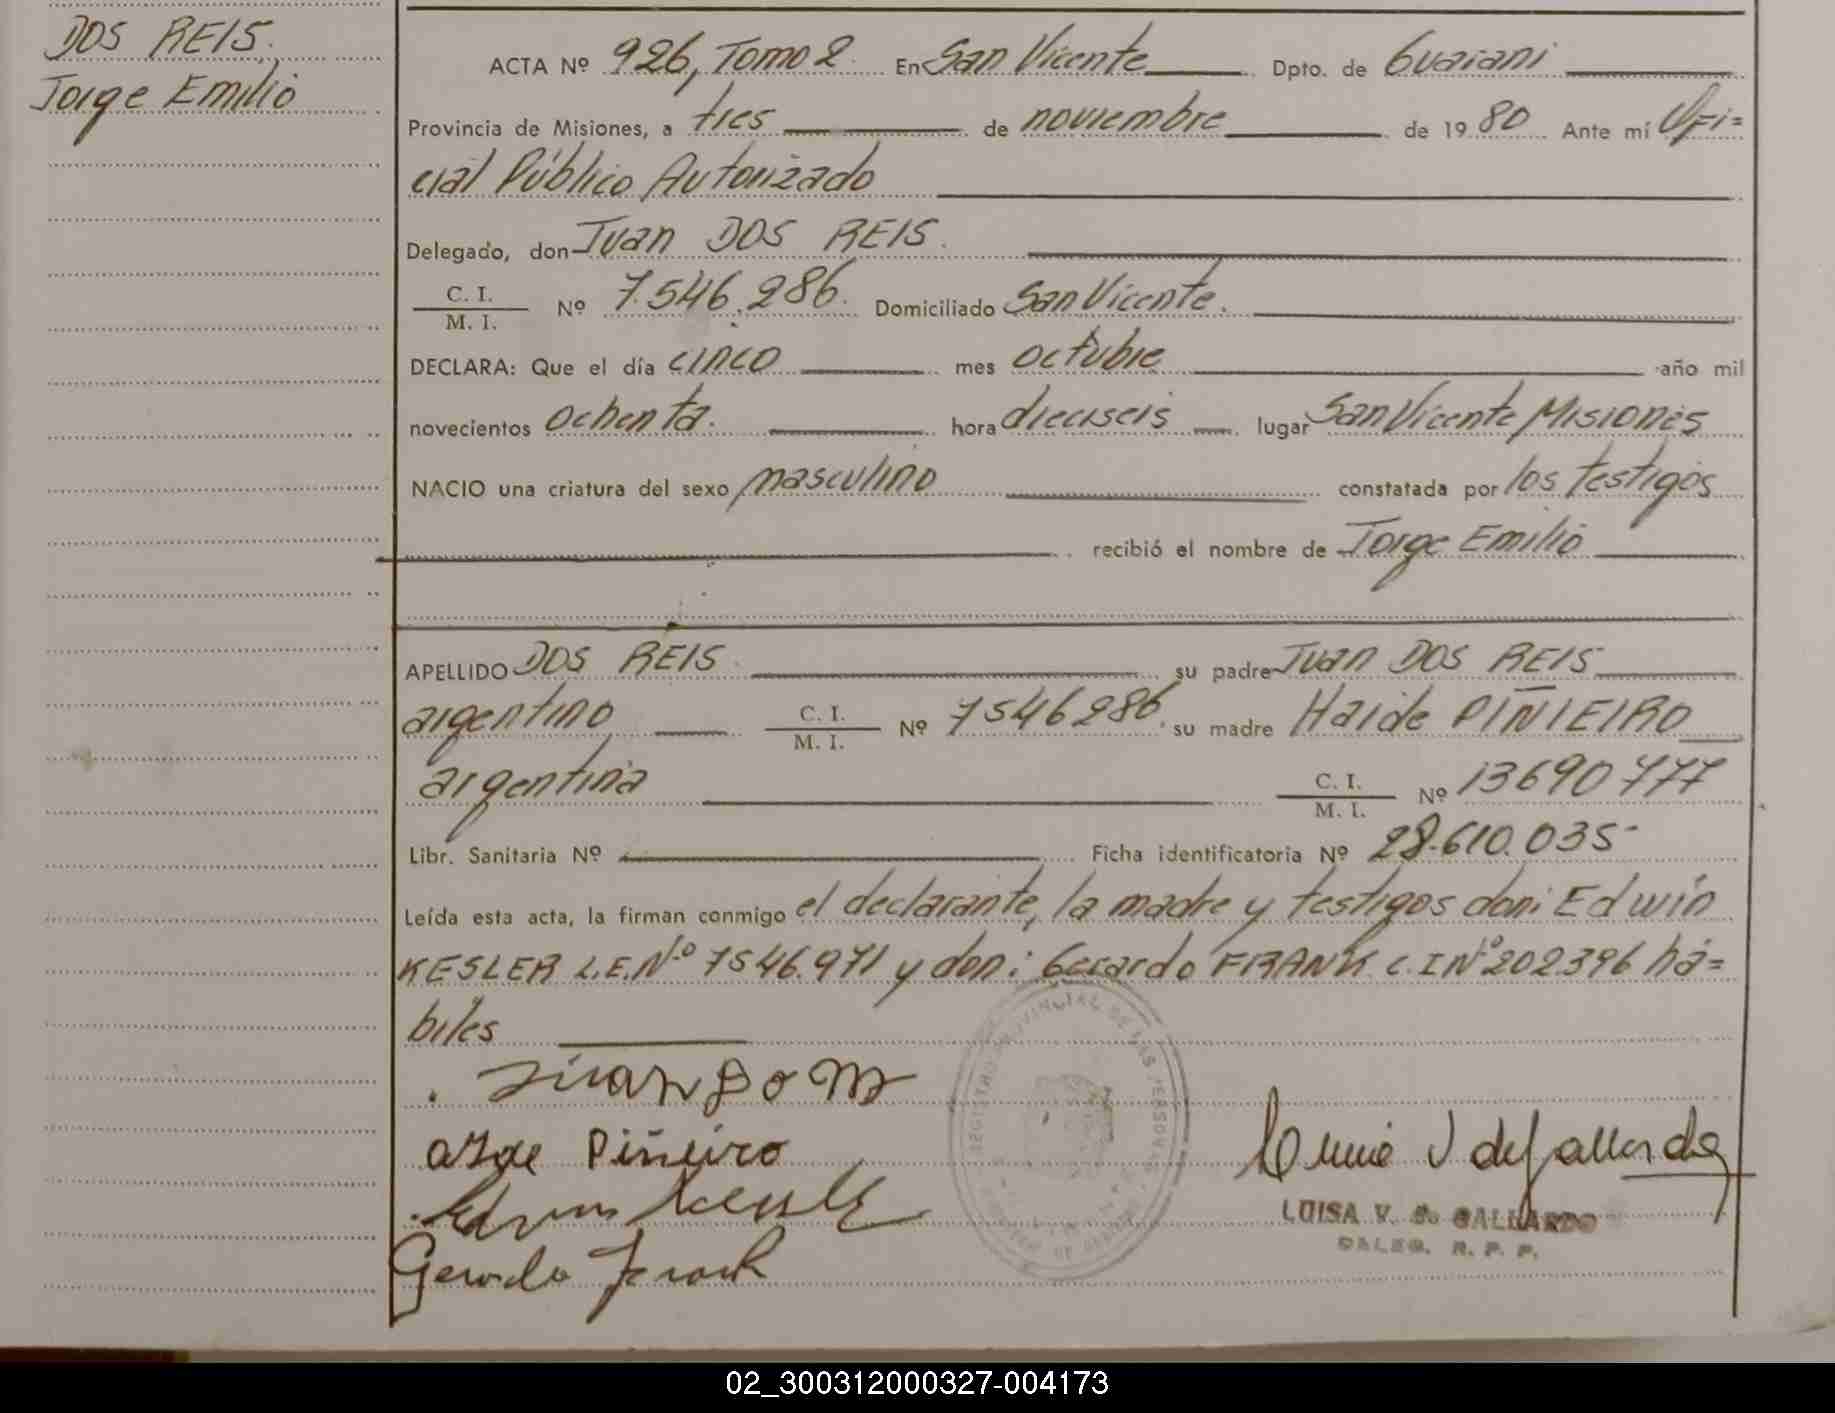 DOS REIS.
Jorge Emilio
ACTA Nº 926, Tomo 2. En San Vicente Dpto. de Guaraní
Provincia de Misiones, a tres de noviembre de 1980 Ante mí Ofi=
cial Público Autorizado
Delegado, don Juan DOS REIS.
C. I.
M. I. Nº 7.546.286. Domiciliado San Vicente.
DECLARA: Que el día cinco mes octubre año mil
novecientos ochenta. hora dieciseis lugar San Vicente Misiones
NACIO una criatura del sexo masculino constatada por los testigos
recibió el nombre de Jorge Emilio
APELLIDO DOS REIS. su padre Juan DOS REIS
argentino C. I. M. I. Nº 7546286. su madre Haide PIÑIEIRO
argentina C. I. M. I. Nº 13690777
Libr. Sanitaria Nº Ficha identificatoria Nº 28.610.035-
Leída esta acta, la firman conmigo el declarante, la madre y testigos don: Edwin
KESLER L.E.Nº 7546.971 y don: Gerardo FRANK C.INº202396 há=
biles
Juan
Piñeiro
Gerardo Frank
REGISTRO PROVINCIAL DE LAS PERSONAS
LUISA V. d. GALLARDO
DALEG. R. P. P.
02_300312000327-004173